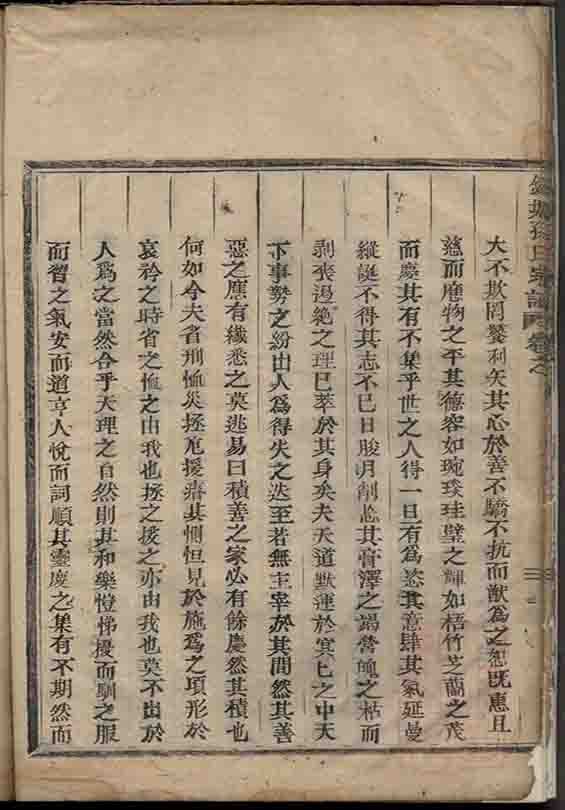 孫氏宗譜 卷之
大不欺罔鬻利矣其心於善不驕不抗而猷爲之恕既惠且
慈而應物之平其德容如琬琰珪璧之輝如梧竹芝蘭之茂
而慶其有不集乎世之人得一日有爲恣其意肆其氣延曼
縱誕不得其志不已日朘月削忘其膏澤之竭營魄之枯而
剥喪過絶之理已萃於其身矣夫天道默運於冥已之中天
下事勢之紛出人爲得失之迭至若無主宰於其間然其善
惡之應有纎悉之莫逃易曰積善之家必有餘慶然其積也
何如今夫省刑恤災拯危援瘠其惻怛見於施爲之頃形於
哀矜之時省之恤之由我也拯之援之亦由我也莫不出於
人爲之當然合乎天理之自然則其和樂愷悌擾而馴之服
而習之氣安而道亨人悅而詞順其靈慶之集有不期然而